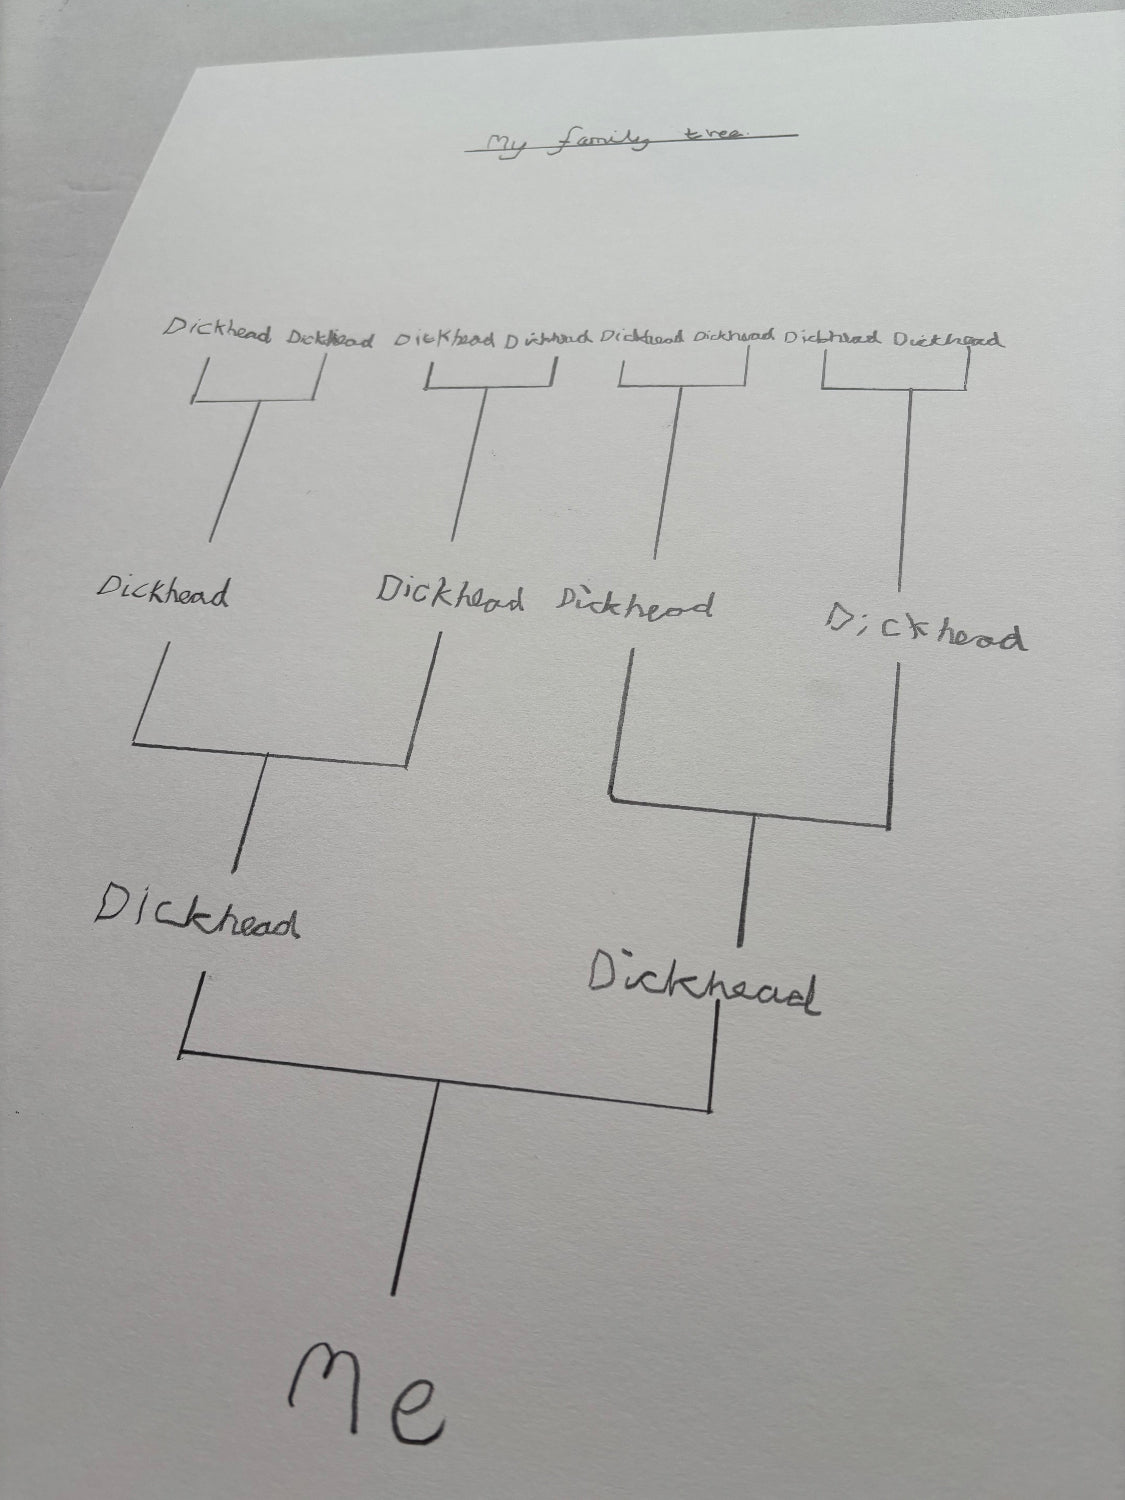 My family tree.
Dickhead Dickhead Dickhead Dickhead Dickhead Dickhead Dickhead Dickhead
Dickhead Dickhead Dickhead Dickhead
Dickhead Dickhead
Me